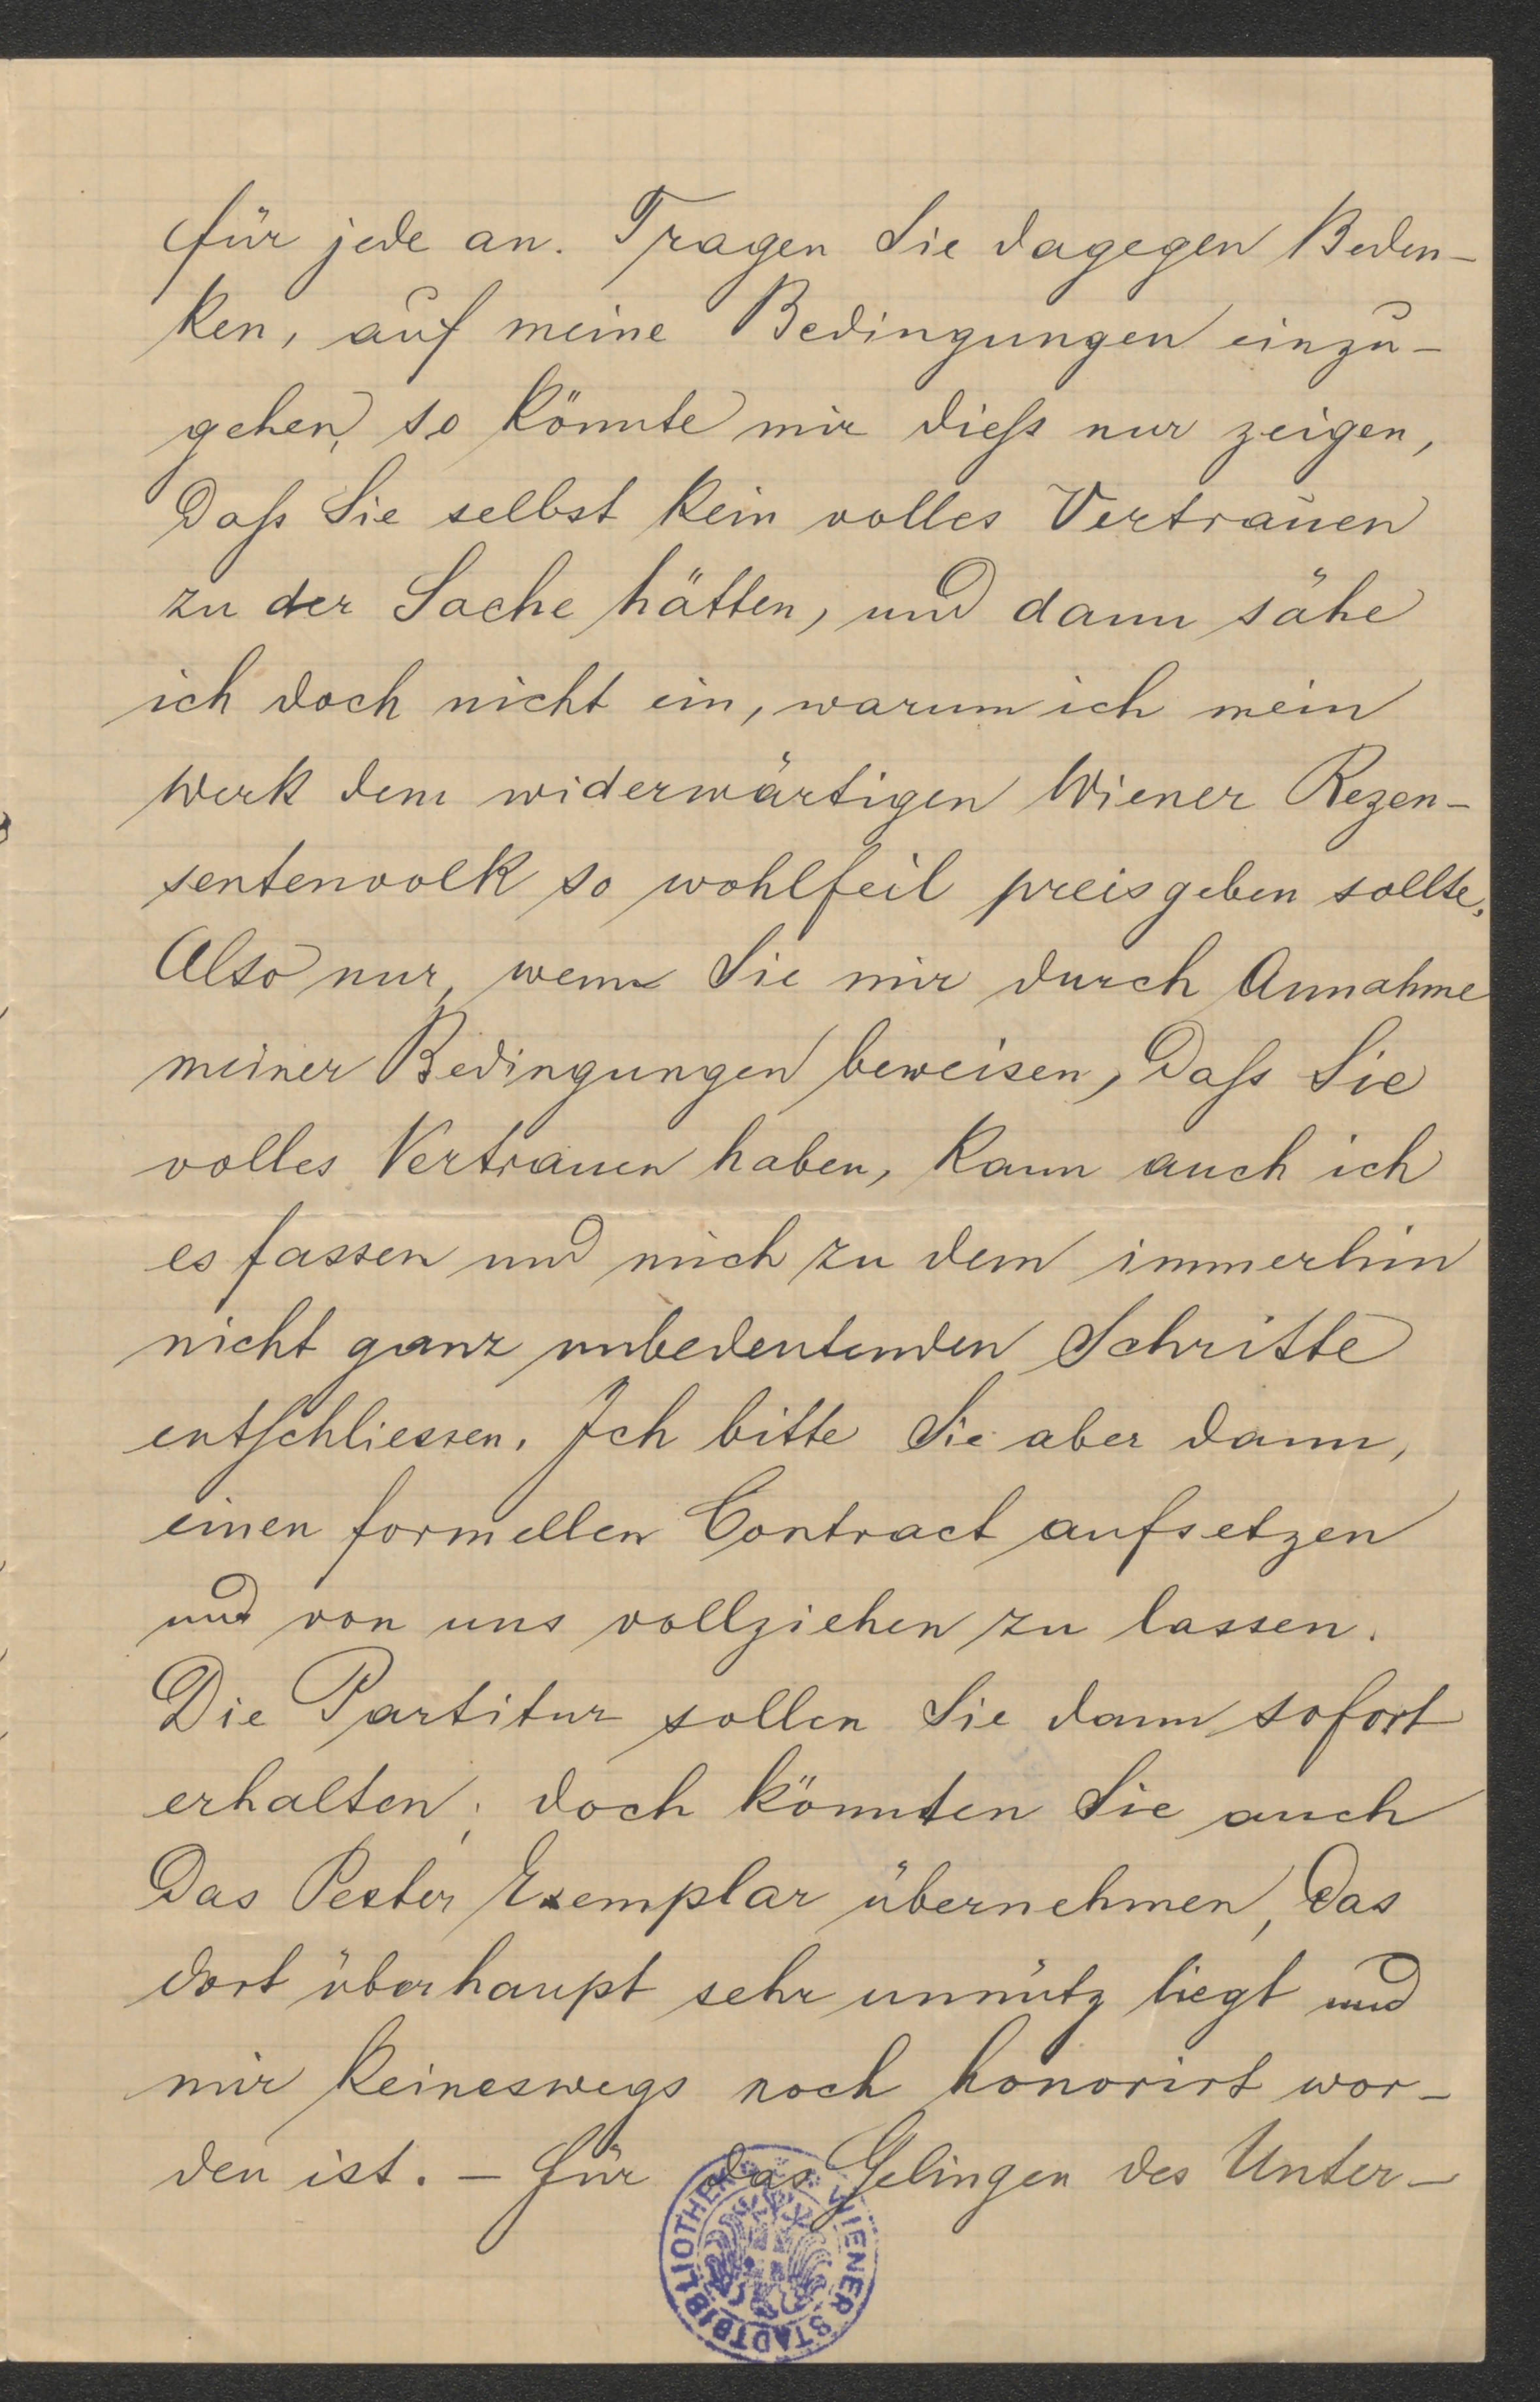 für jede an. Tragen Sie dagegen Beden-
ken, auf meine Bedingungen einzu-
gehen, so könnte mir dieß nur zeigen,
daß Sie selbst kein volles Vertrauen
zu der Sache hätten, und dann sähe
ich doch nicht ein, warum ich mein
Werk dem widerwärtigen Wiener Rezen-
sentenvolk so wohlfeil preisgeben sollte.
Also nur, wenn Sie mir durch Annahme
meiner Bedingungen beweisen, daß Sie
volles Vertrauen haben, kann auch ich
es fassen und mich zu dem immerhin
nicht ganz unbedeutenden Schritte
entschliessen. Ich bitte Sie aber dann,
einen formellen Contract aufsetzen
und von uns vollziehen zu lassen.
Die Partitur sollen Sie dann sofort
erhalten; doch könnten Sie auch
das Pester Exemplar übernehmen, das
dort überhaupt sehr unnütz liegt und
mir keineswegs noch honorirt wor-
den ist. – Für das Gelingen des Unter-
BIBLIOTHEK DER WIENER STADT